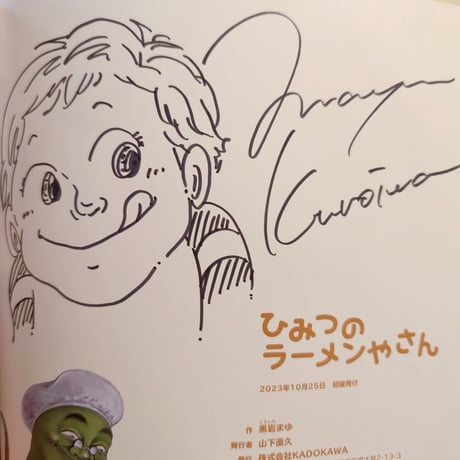 Mayu
Kuroiwa
ひみつの
ラーメンやさん
2023年10月25日 初版発行
くろいわ
作 黒岩まゆ
発行者 山下直久
発行 株式会社KADOKAWA
2-13-3